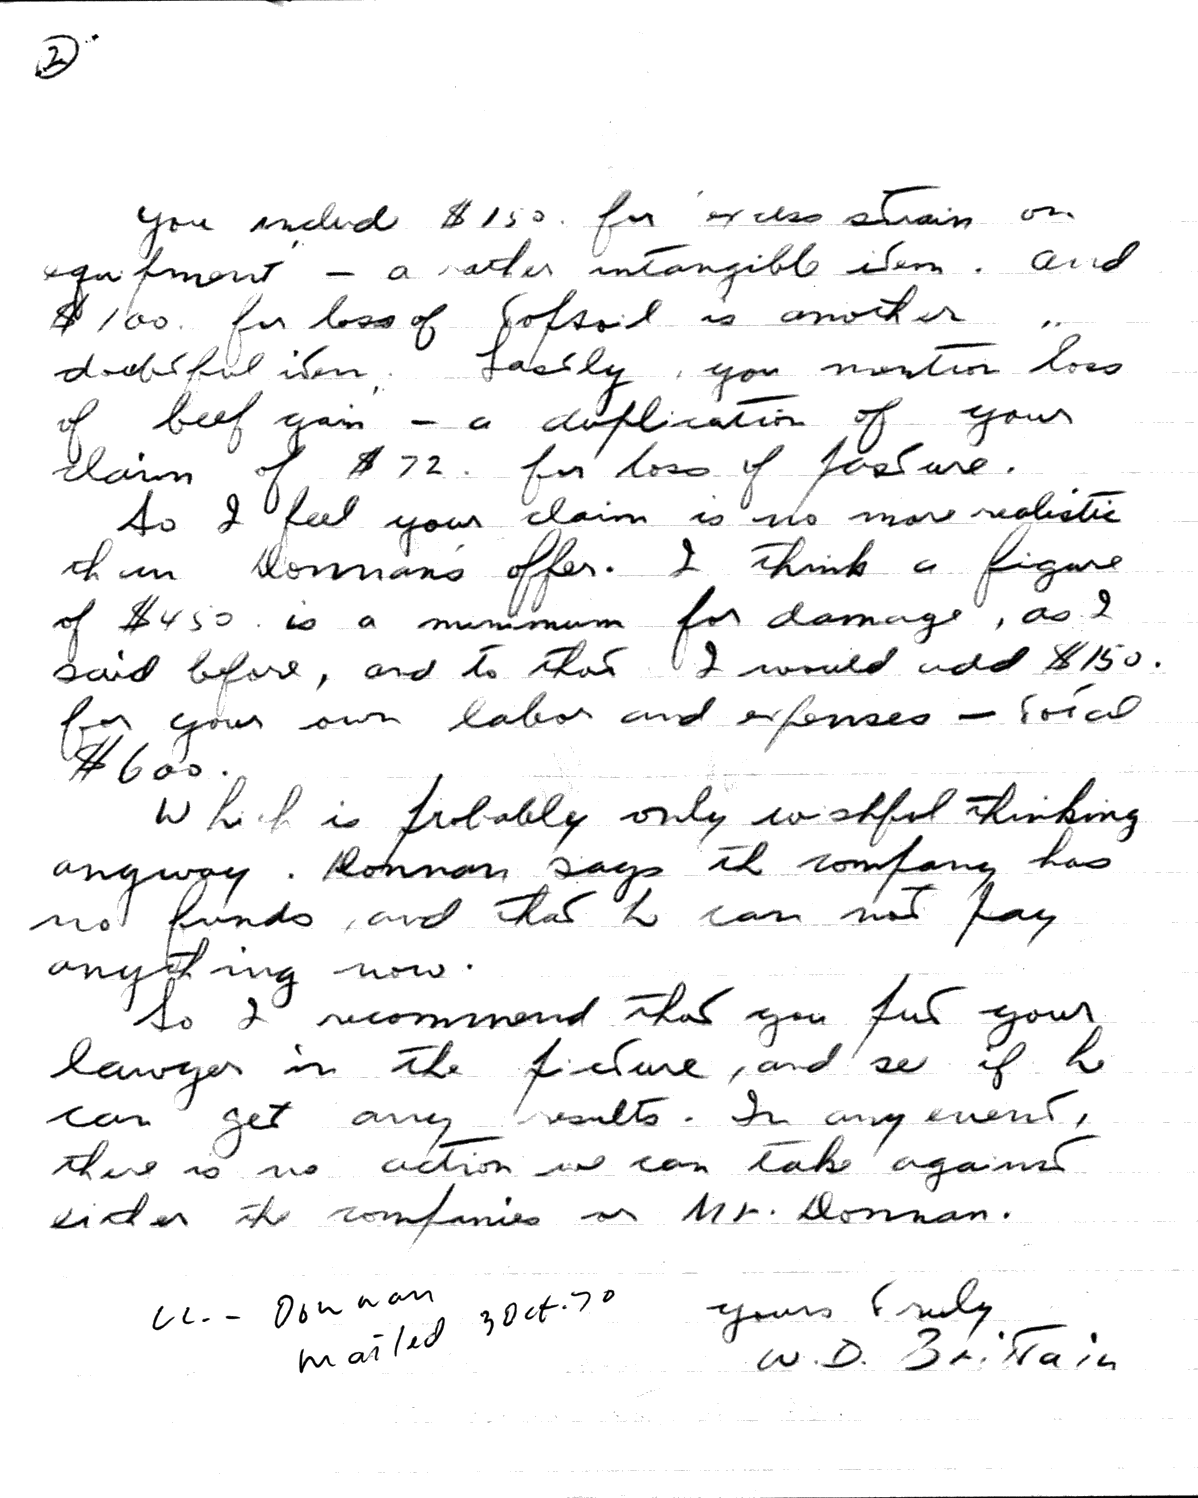 2
You includ $150. for excess strain on
equipment - a rather intangible item. and
$100. for loss of topsoil is another
doubtful item. Lastly, you mention loss
of beef gain - a duplication of your
claim of $72. for loss of pasture.
So I feel your claim is no more realistic
than Donnan's offer. I think a figure
of $450. is a minimum for damage, as I
said before, and to that I would add $150.
for your own labor and expenses - total
$600.
Which is probably only wishful thinking
anyway. Donnan says the company has
no funds, and that he can not pay
anything now.
So I recommend that you put your
lawyer in the picture, and see if he
can get any results. In any event,
there is no action we can take against
either the companies or Mr. Donnan.
cc. - Donnan
mailed 3 Oct. 70
yours truly
W. D. Brittain